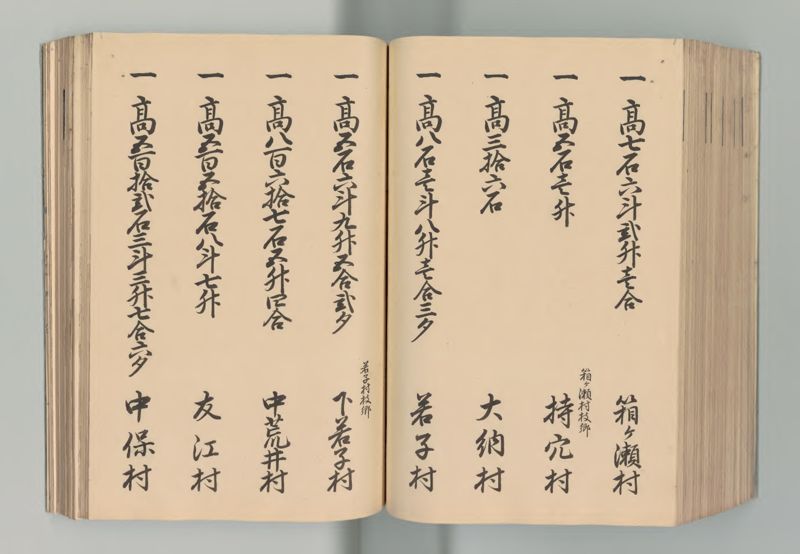 一 高七石六斗弐升壱合 箱ヶ瀬村
箱ヶ瀬村枝郷
一 高五石壱升 持穴村
一 高三拾六石 大納村
一 高八石壱斗八升壱合三夕 若子村
若子村枝郷
一 高五石六斗九升五合弐夕 下若子村
一 高八百六拾七石五升四合 中荒井村
一 高五百五拾石八斗七升 友江村
一 高五百拾弐石三斗三升七合六夕 中保村